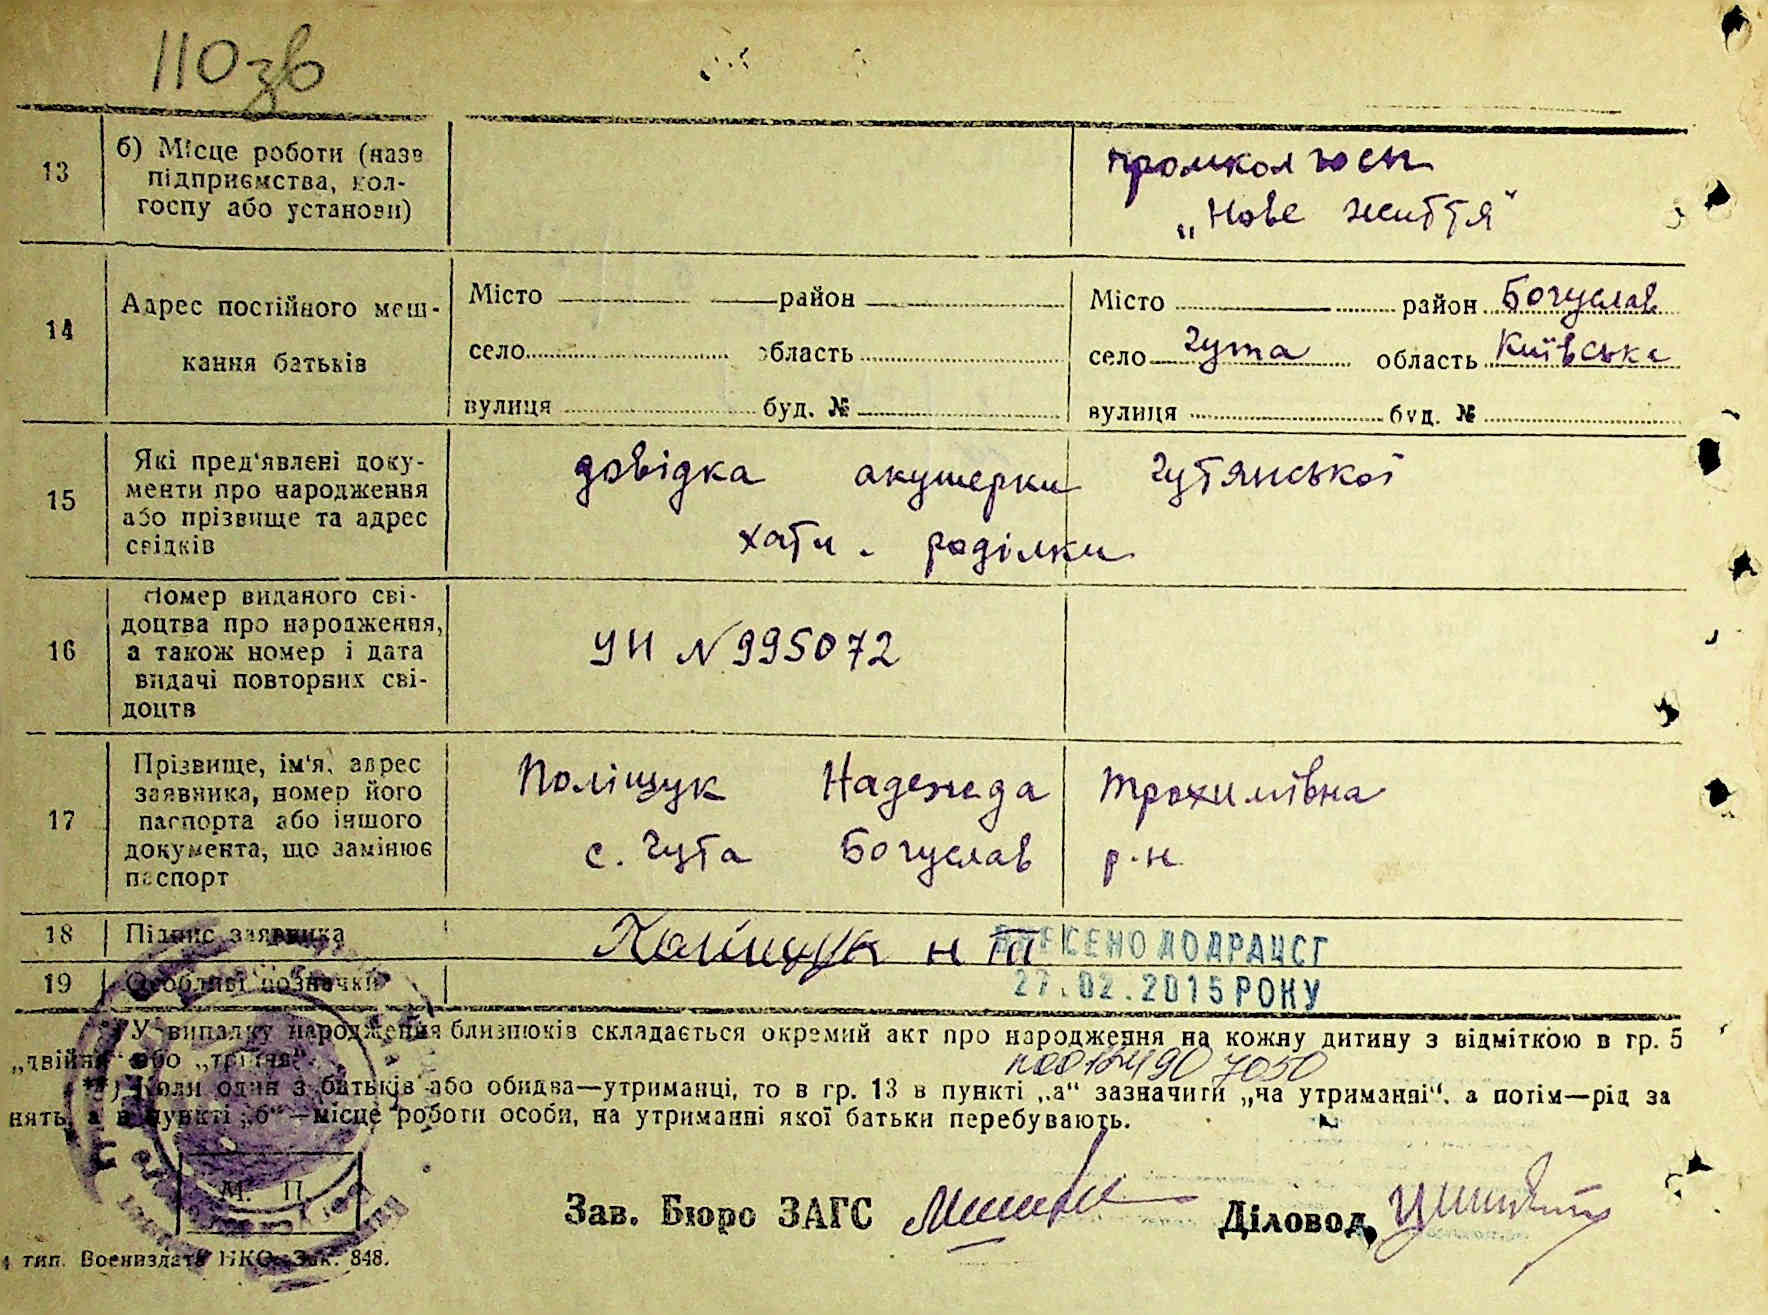 110зв
13
б) Місце роботи (назв
підприємства, кол-
госпу або установи)
промкол
"Нове життя"
14
Адрес постійного меш-
кання батьків
Місто район
село область
вулиця буд. №
Місто район Богуслав
село Гута область Київська
вулиця буд. №
15
Які пред'явлені доку-
менти про народження
або прізвище та адрес
свідків
довідка акушерки Гутянської
хати - роділки
16
Номер виданого сві-
доцтва про народження,
а також номер і дата
видачі повторних сві-
доцтв
УН N 995072
17
Прізвище, ім'я, адрес
заявника, номер його
паспорта або іншого
документа, що замінює
паспорт
Поліщук Надежда Трохимівна
с. Гута Богуслав р-н
18
Підпис заявника
Поліщук Н Т
ВНЕСЕНО ДО ДРАЦСГ
19
Особливі позначки
27.02.2015 РОКУ
*) У випадку народження близнюків складається окремий акт про народження на кожну дитину з відміткою в гр. 5
„двійня" або „трійня".
**) Коли один з батьків або обидва—утриманці, то в гр. 13 в пункті „а" зазначити „на утриманні", а потім—рід за
нять, а в пункті „б"—місце роботи особи, на утриманні якої батьки перебувають.
М. П.
Зав. Бюро ЗАГС
Діловод
тип. Воениздата НКО. Зак. 848.